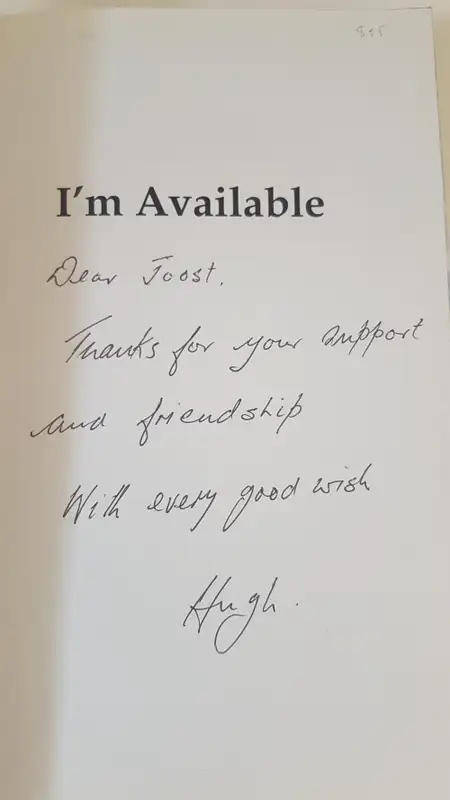 I'm Available
Dear Joost.
Thanks for your support
and friendship
With every good wish
Hugh.